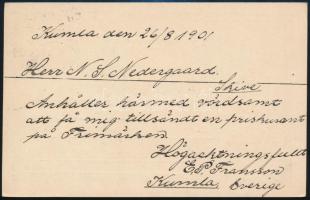 Kumla den 26/8 1901
Herr N. S. Nedergaard.
Skive
Anhåller härmed vördsamt
att få mig tillsändt en priskurant
på Frimärken
Högachtningsfullt
E. P. Fransson
Kumla, Sverige